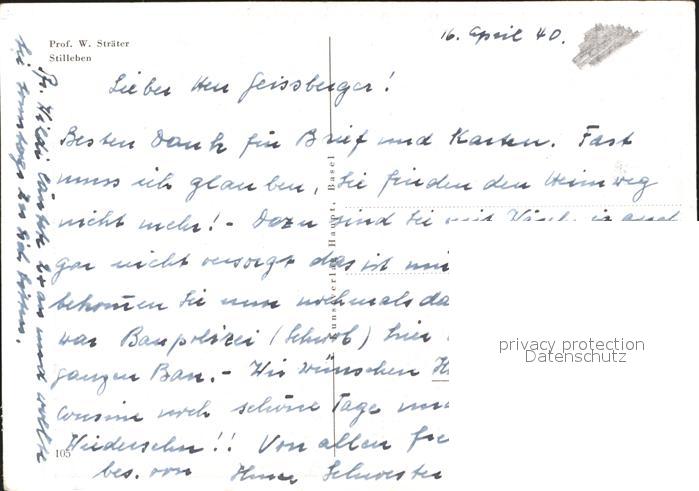 Prof. W. Sträter
Stilleben
16. April 40.
Lieber Herr Geissberger!
Besten Dank für Brief und Karten. Fast
muss ich glauben, Sie finden den Heimweg
nicht mehr! - Dazu sind Sie mit
gar nicht versorgt das ist
bekommen Sie nun nochmals da
war Baupolizei (Schwob) hier
ganzen Bau. - Wir wünschen
Cousine noch schöne Tage
Wiedersehn!! Von allen
bes. von Ihrer Schwester
105
Kunstverlag Haupt, Basel
Fr. Hildi läutete an und wollte
Sie Sonntags zu sich bitten.
privacy protection
Datenschutz